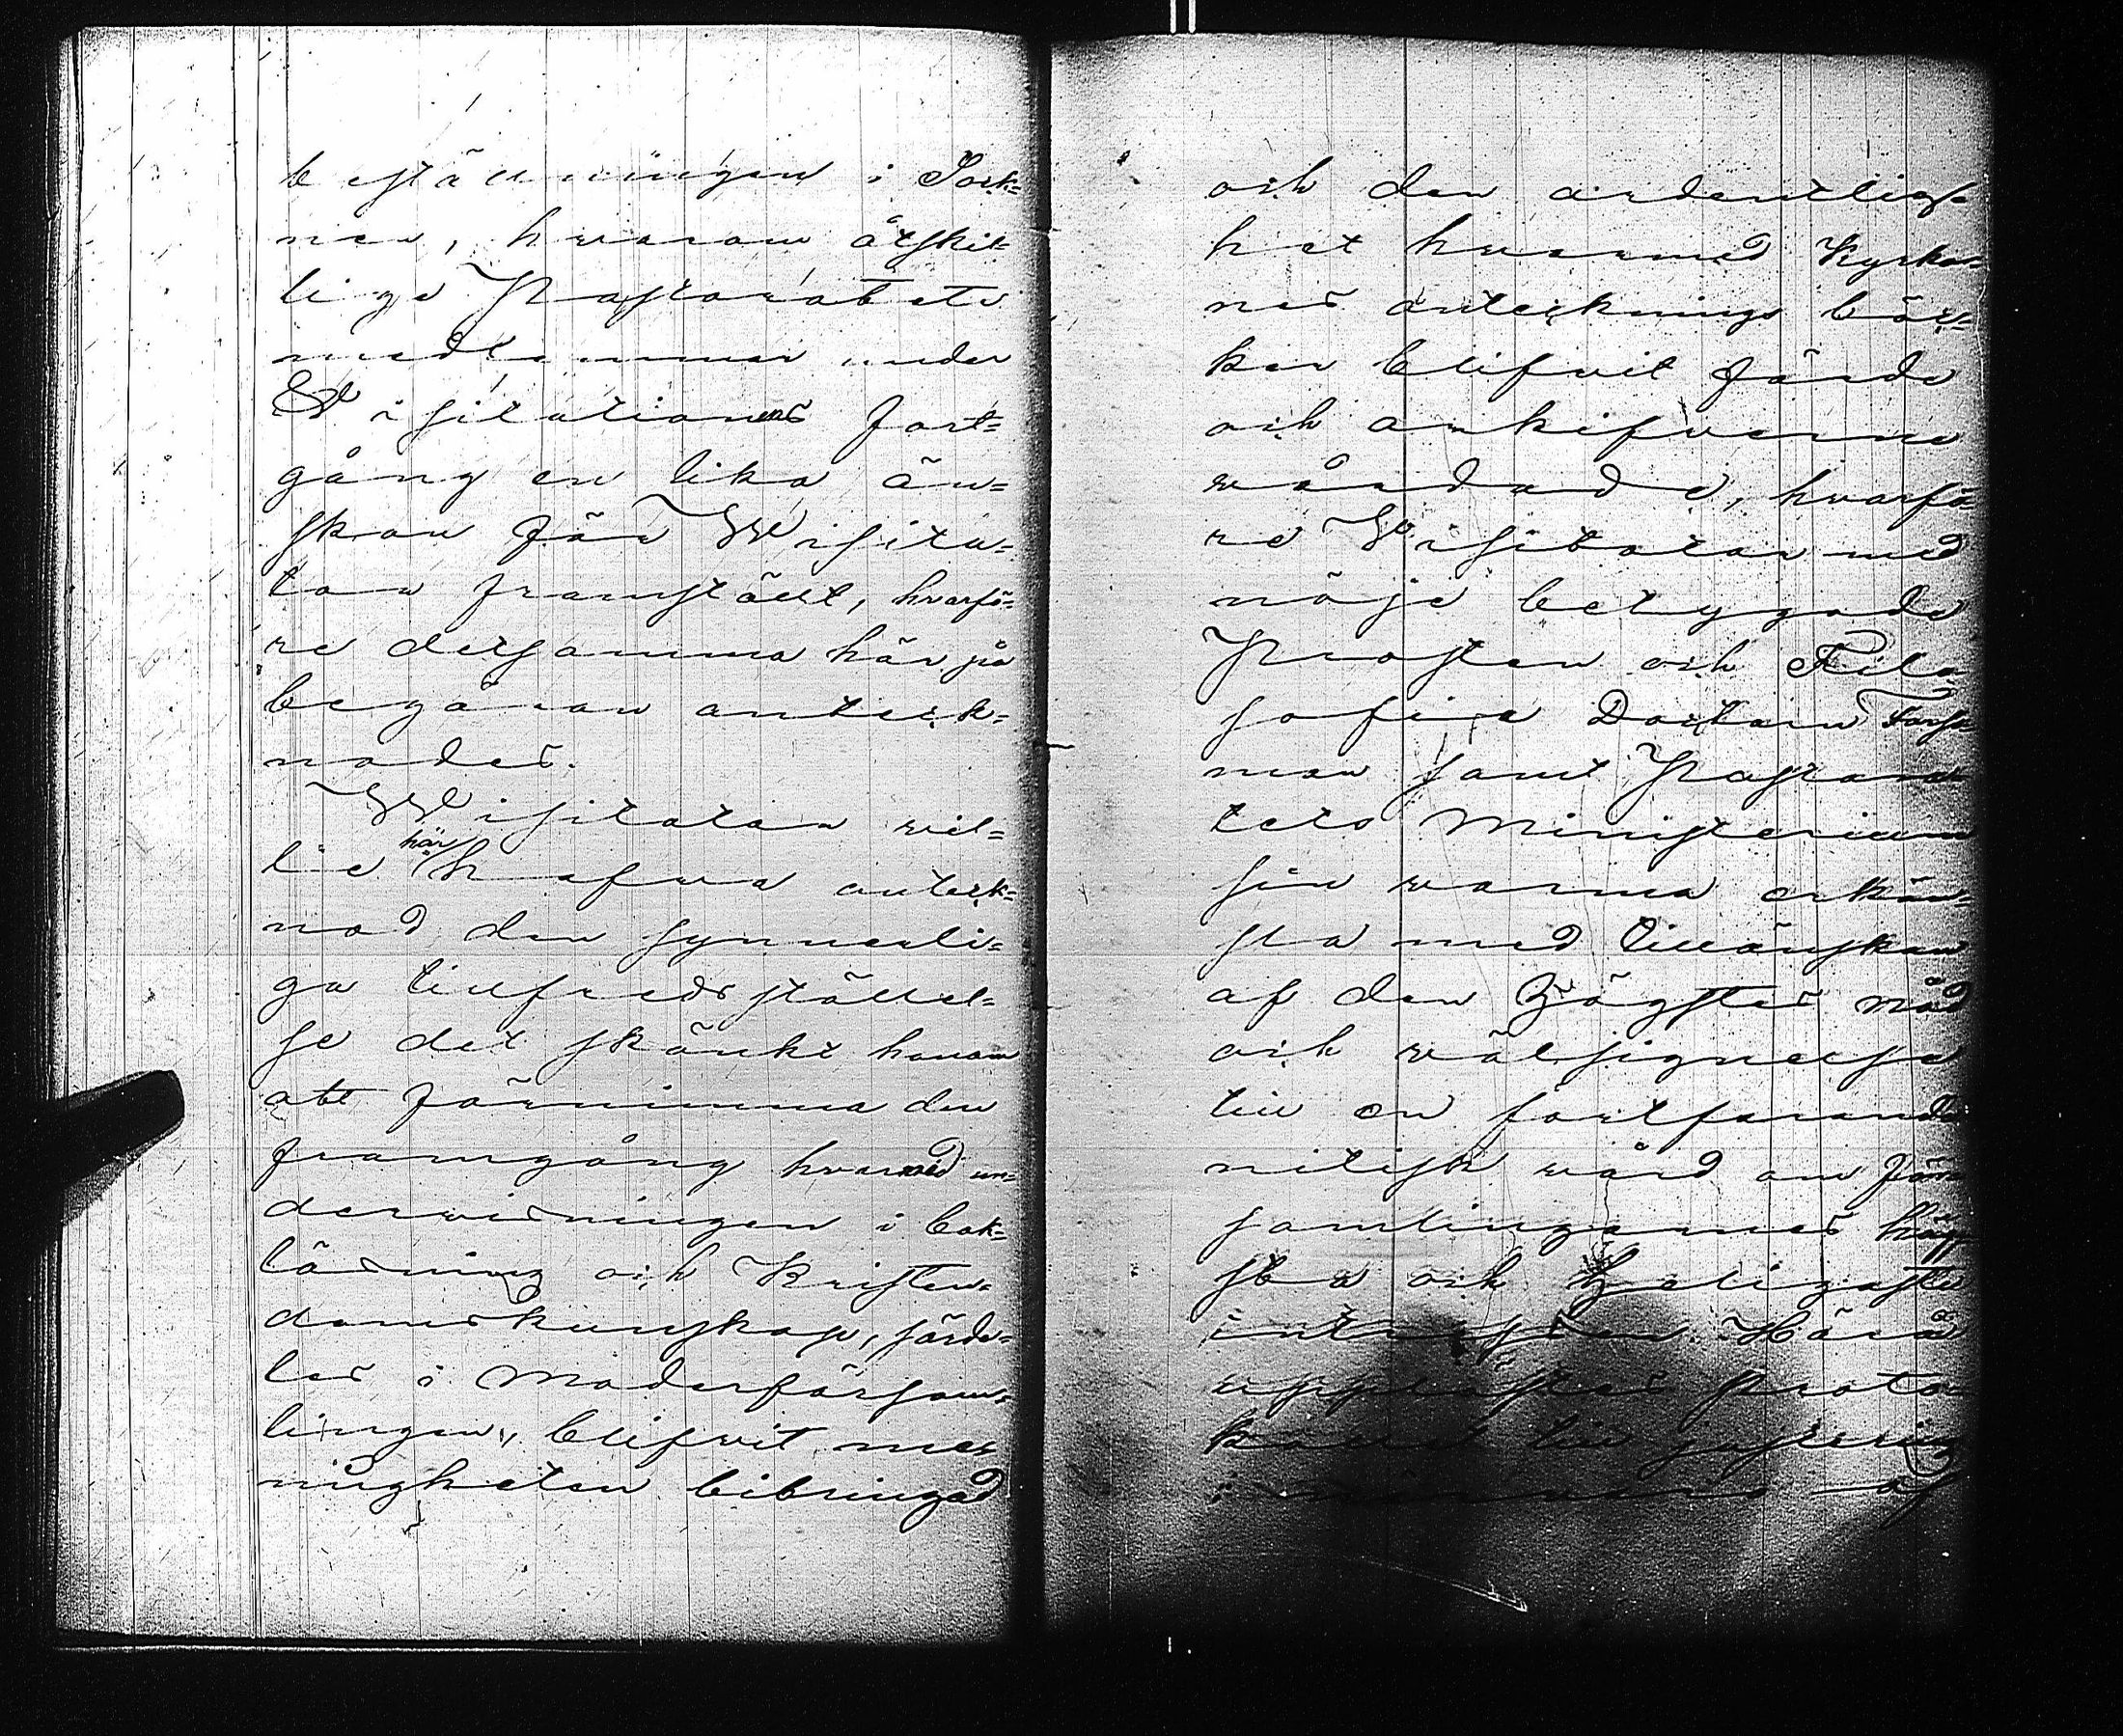 beställningen i Sock-
nen, hvarom åtskil-
lige Pastoratets
medlemmar under
Visitationens fort-
gång en lika ön-
skan för Visita-
torn framställt, hvarfö-
re detsamma här på
begäran anteck-
nades.
Visitatorn vil-
le här hafva anteck-
nad den synnerli-
ga tillfredsställel-
se det skänkt honom
att förnimma den
framgång hvarmed un-
dervisningen i bok-
läsning och Kristen-
domskunskap, särde-
les i Moderförsam-
lingen, blifvit men-
nigheten bibringad
och den ordentlig-
het hvarmed Kyrkor-
nes antecknings böc-
ker blifvit förde
och arkifverne
vårdade, hvarfö-
re Visitatorn med
nöje betygade
Prosten och Filo-
sofie Doctorn Forss-
man samt Pastora-
tets Ministerium
sin varma erkän-
sla med tillönskan
af den Högstes nåd
och välsignelse
till en fortfarande
nitisk vård om för-
samlingarnes hög-
sta och heligaste
intressen. Härå
upplästes proto-
kollet till justering
i närvaro af